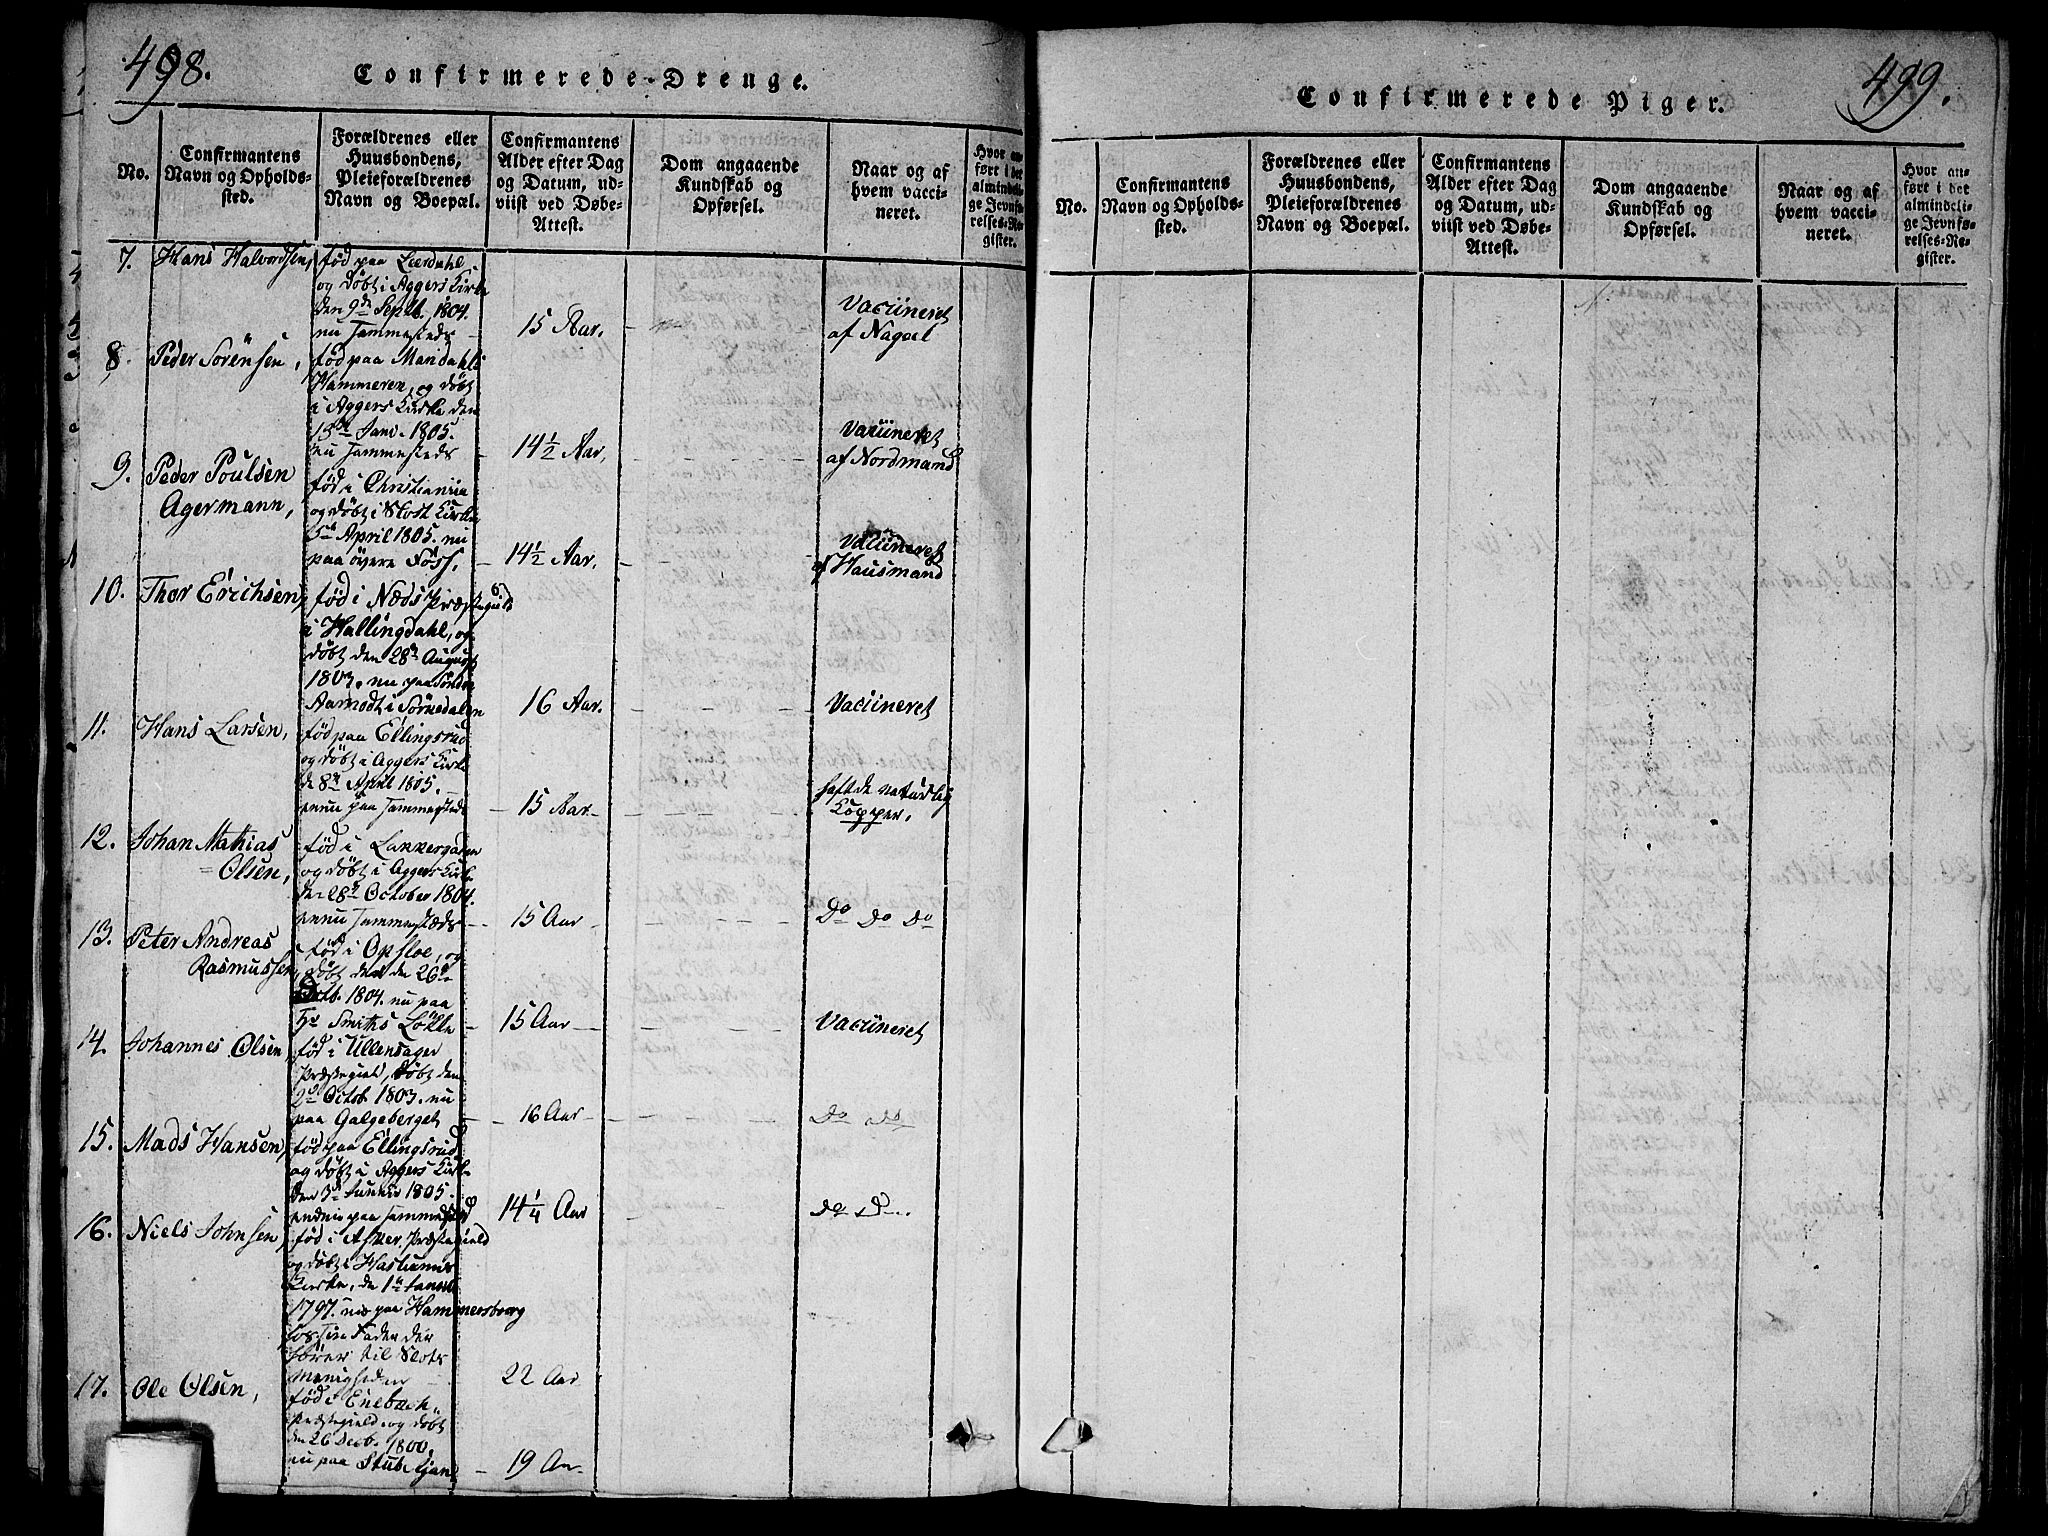 498.
Confirmerede-Drenge.
No.
Confirmantens
Navn og Opholds-
sted.
Forældrenes eller
Huusbondens,
Pleieforældrenes
Navn og Boepæl.
Confirmantens
Alder efter Dag
og Datum, ud-
viist ved Døbe-
Attest.
Dom angaaende
Kundskab og
Opførsel.
Naar og af
hvem vacci-
neret.
Hvor an-
ført i det
almindeli-
ge Jevnfø-
relses-Re-
gister.
7. Hans Halvordsen,
født paa Lærdahl
og døbt i Aggers Kirke
den 9de Septb. 1804.
nu sammesteds
15 Aar.
Vaciineret
af Nagel
8. Peder Sørensen,
født paa Maridahls
Hammeren, og døbt
i Aggers Kirke den
13de Janv. 1805.
nu sammesteds
14½ Aar,
Vaciineret
af Nordmand
9. Peder Poulsen
Agermann,
født i Christiania
og døbt i Slots Kirke
5te April 1805. nu
paa øvere Foss.
14½ Aar.
Vaciineret
af Hausmand
10. Thor Erichsen,
født i Næds Præstegield
i Hallingdahl, og
døbt den 28de August
1803. nu paa Søndre
Aamodt i Sørkedalen
16 Aar.
Vaciineret
11. Hans Larsen,
født paa Ellingsrud
og døbt i Aggers Kirke
de 8de April 1805.
ennu paa sammesteds
15 Aar
hafte de naturlig
Kopper.
12. Johan Mathias
Olsen,
født i Lakkergaden
og døbt i Aggers Kirk.
den 28de October 1804.
ennu sammesteds
15 Aar
Do Do Do
13. Peter Andreas
Rasmussen,
født i Opsloe, og
døbt den de 26de
Octb. 1804. nu paa
Hr Smiths Løkke
15 Aar
Vaciineret
14. Johannes Olsen,
født i Ullensager
Præstegield, døbt den
2de Octob 1803. nu
paa Galgeberget
16 Aar
Do Do
15. Mads Hansen,
født paa Ellingsrud
og døbt i Aggers Kirke
den 3de Junii 1805.
endnu paa sammested
14¼ Aar
Do D..
16. Niels Johnsen,
født i Asker Præstegield
og døbt i Haslums
Kirke, de 1te Januar
1797. nu paa Hammersborg
hos sin Fader der
hører til Slots
Menigheden
22 Aar
17. Ole Olsen,
født i Enebach
Præstegield og døbt
den 26 Decb. 1800.
nu paa Stubeljan
19 Aar
499.
Confirmerede Piger.
No.
Confirmantens
Navn og Opholds-
sted.
Forældrenes eller
Huusbondens,
Pleieforældrenes
Navn og Boepæl.
Confirmantens
Alder efter Dag
og Datum, ud-
viist ved Døbe-
Attest.
Dom angaaende
Kundskab og
Opførsel.
Naar og af
hvem vacci-
neret.
Hvor an-
ført i det
almindeli-
ge Jevnfø-
relses-Re-
gister.